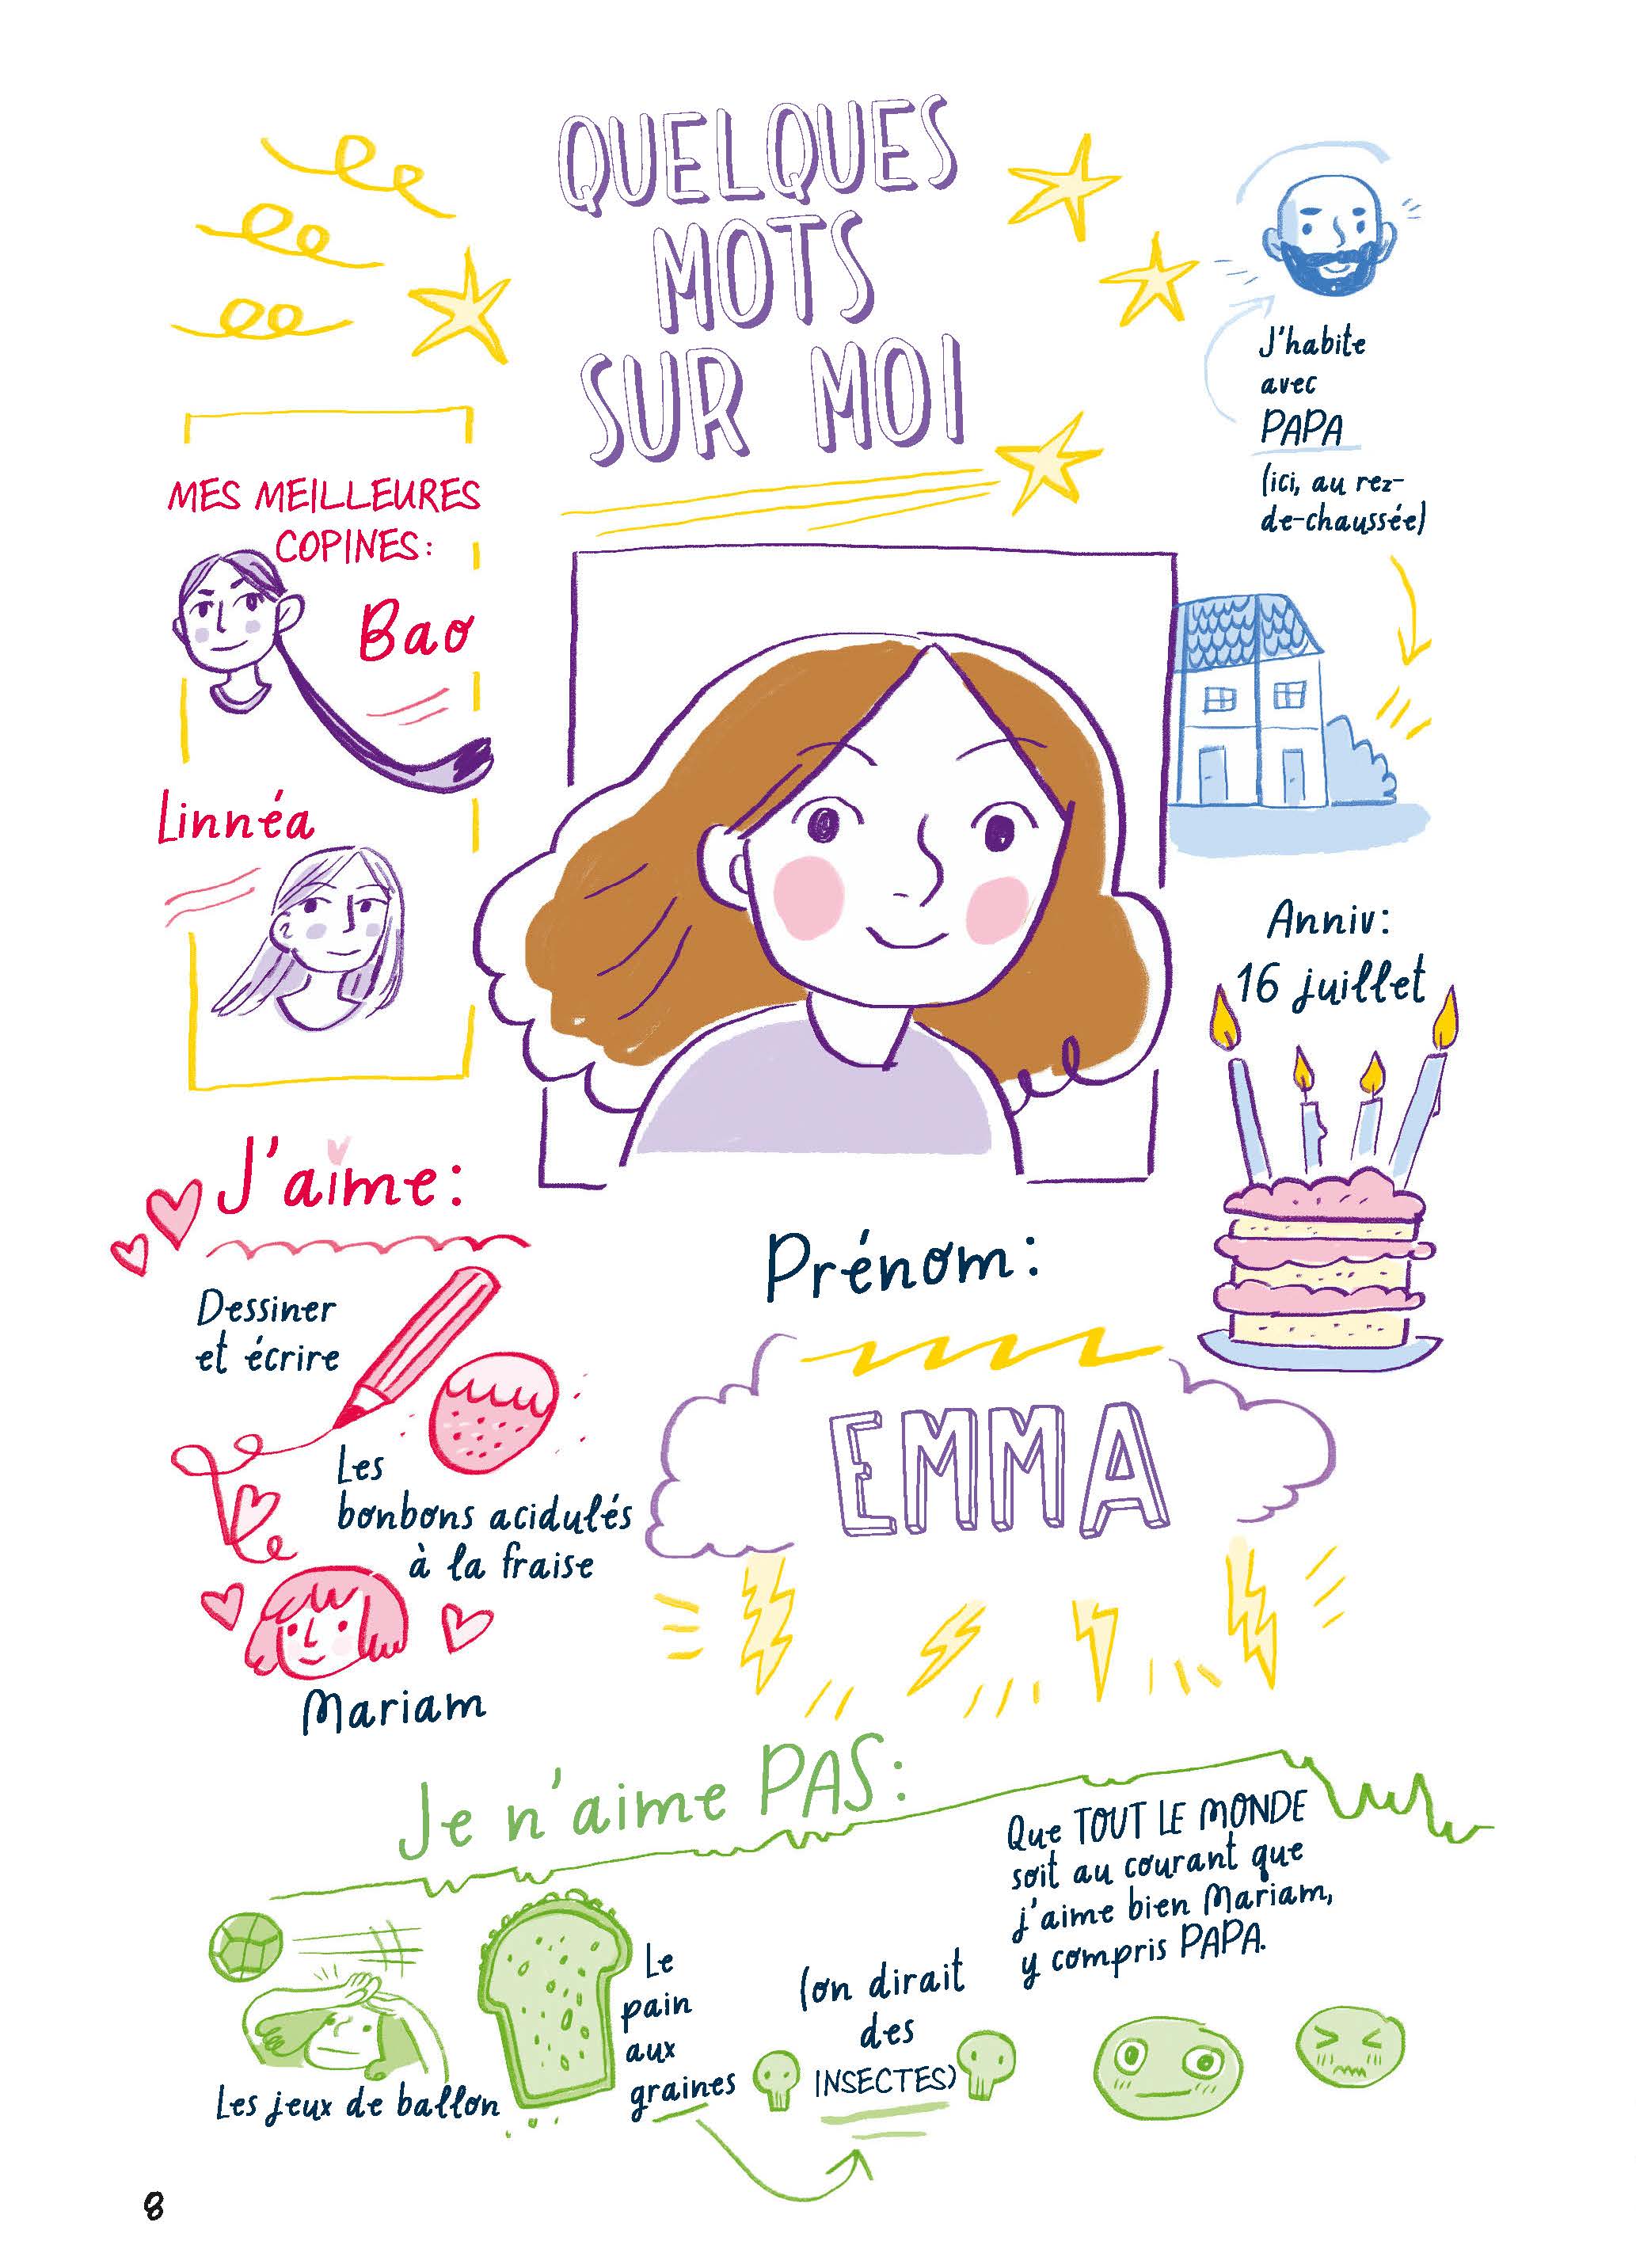 QUELQUES
MOTS
SUR MOI
J'habite
avec
PAPA
(ici, au rez-
de-chaussée)
MES MEILLEURES
COPINES:
Bao
Linnéa
Anniv:
16 juillet
J'aime:
Dessiner
et écrire
Les
bonbons acidulés
à la fraise
Mariam
Prénom:
EMMA
Je n'aime PAS:
Les jeux de ballon
Le
pain
aux
graines
(on dirait
des
INSECTES)
Que TOUT LE MONDE
soit au courant que
j'aime bien Mariam,
y compris PAPA.
8